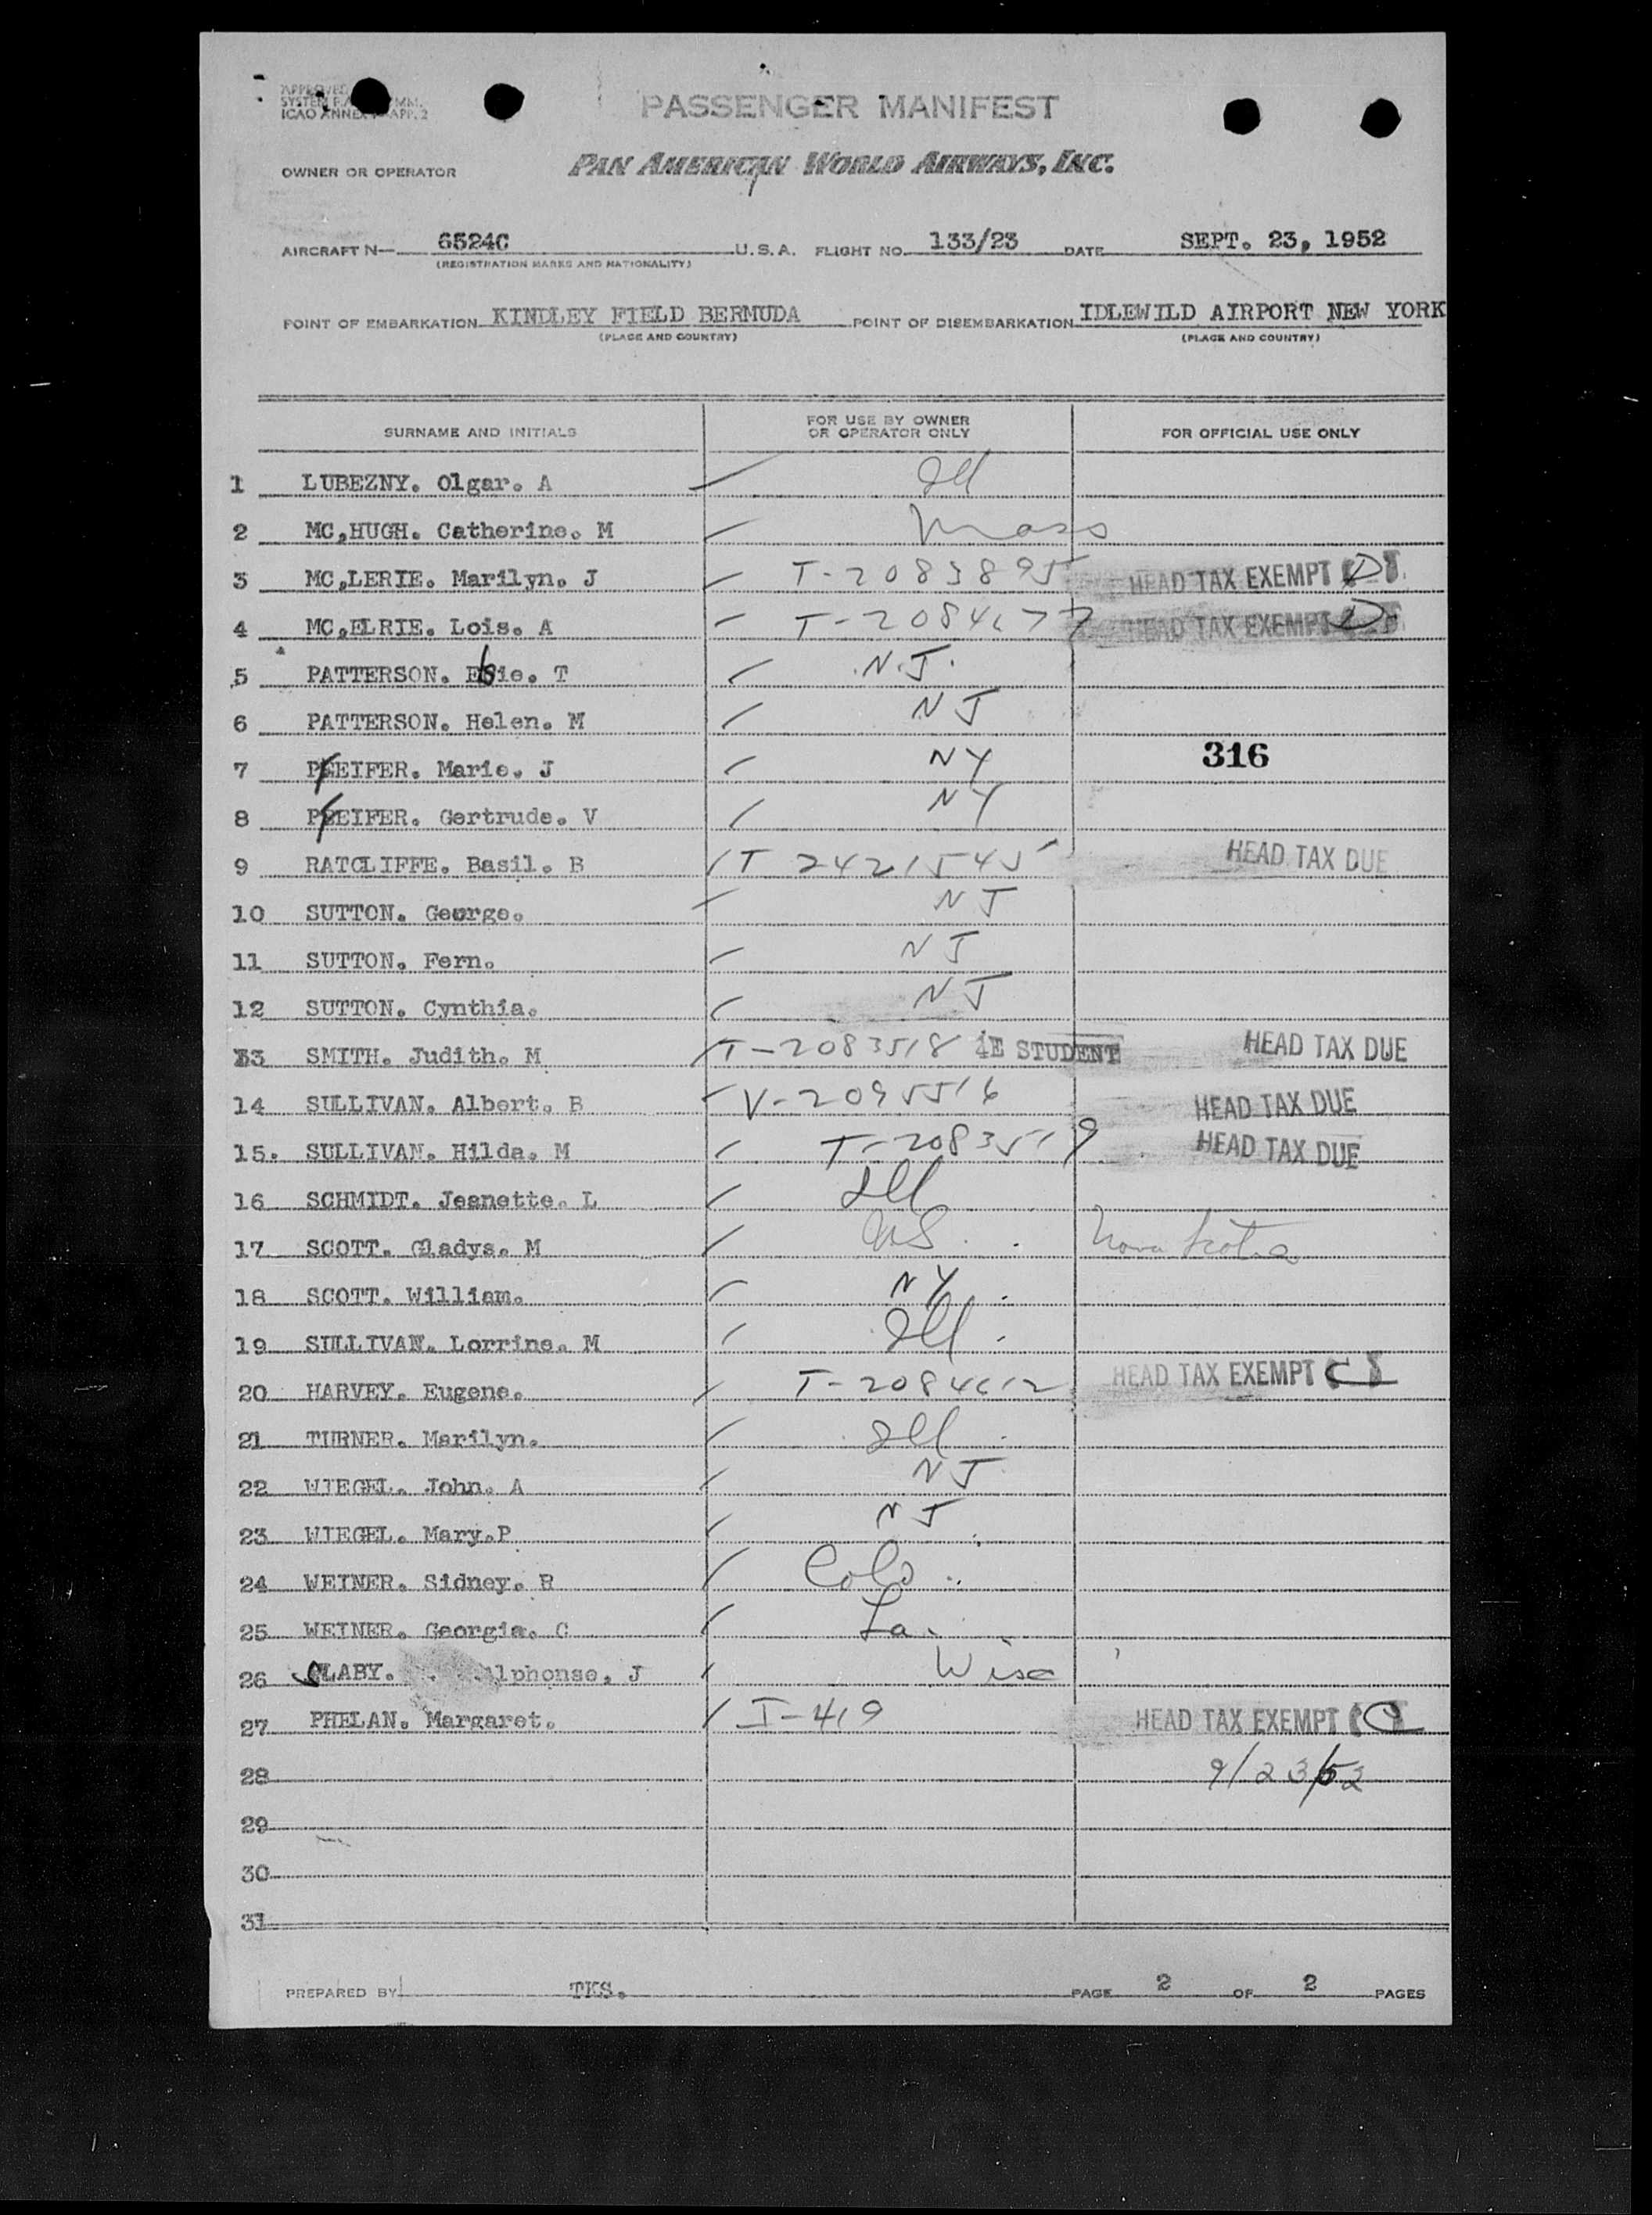 APPROVED
SYSTEM F.A. COMM.
ICAO ANNEX APP. 2
PASSENGER MANIFEST
OWNER OR OPERATOR PAN AMERICAN WORLD AIRWAYS, INC.
AIRCRAFT N— 6524C U.S.A. FLIGHT NO. 133/23 DATE SEPT. 23, 1952
(REGISTRATION MARKS AND NATIONALITY)
POINT OF EMBARKATION KINDLEY FIELD BERMUDA POINT OF DISEMBARKATION IDLEWILD AIRPORT NEW YORK
(PLACE AND COUNTRY) (PLACE AND COUNTRY)
SURNAME AND INITIALS FOR USE BY OWNER OR OPERATOR ONLY FOR OFFICIAL USE ONLY
1 LUBEZNY. Olgar. A Ill
2 MC,HUGH. Catherine. M Mass
3 MC,LERIE. Marilyn. J T-2083895 HEAD TAX EXEMPT D
4 MC,ELRIE. Lois. A T-2084677 HEAD TAX EXEMPT D
5 PATTERSON. T N.J.
6 PATTERSON. Helen. M NJ
7 PFEIFER. Marie. J NY 316
8 PFEIFER. Gertrude. V NY
9 RATCLIFFE. Basil. B T 2421545 HEAD TAX DUE
10 SUTTON. George. NJ
11 SUTTON. Fern. NJ
12 SUTTON. Cynthia. NJ
13 SMITH. Judith. M T-2083518 4E STUDENT HEAD TAX DUE
14 SULLIVAN. Albert. B V-2095516 HEAD TAX DUE
15. SULLIVAN. Hilda. M T-2083519 HEAD TAX DUE
16 SCHMIDT. Jeanette. L Ill
17 SCOTT. Gladys. M NS Nova Scotia
18 SCOTT. William. NY
19 SULLIVAN. Lorrine. M Ill
20 HARVEY. Eugene. T-2084612 HEAD TAX EXEMPT C
21 TURNER. Marilyn. Ill
22 WIEGEL. John. A NJ
23 WIEGEL. Mary.P NJ
24 WEINER. Sidney. R Colo
25 WEINER. Georgia. C La.
26 SLABY. Alphonse, J Wisc
27 PHELAN. Margaret. I-419 HEAD TAX EXEMPT C
28 9/23/52
29
30
31
PREPARED BY TKS. PAGE 2 OF 2 PAGES